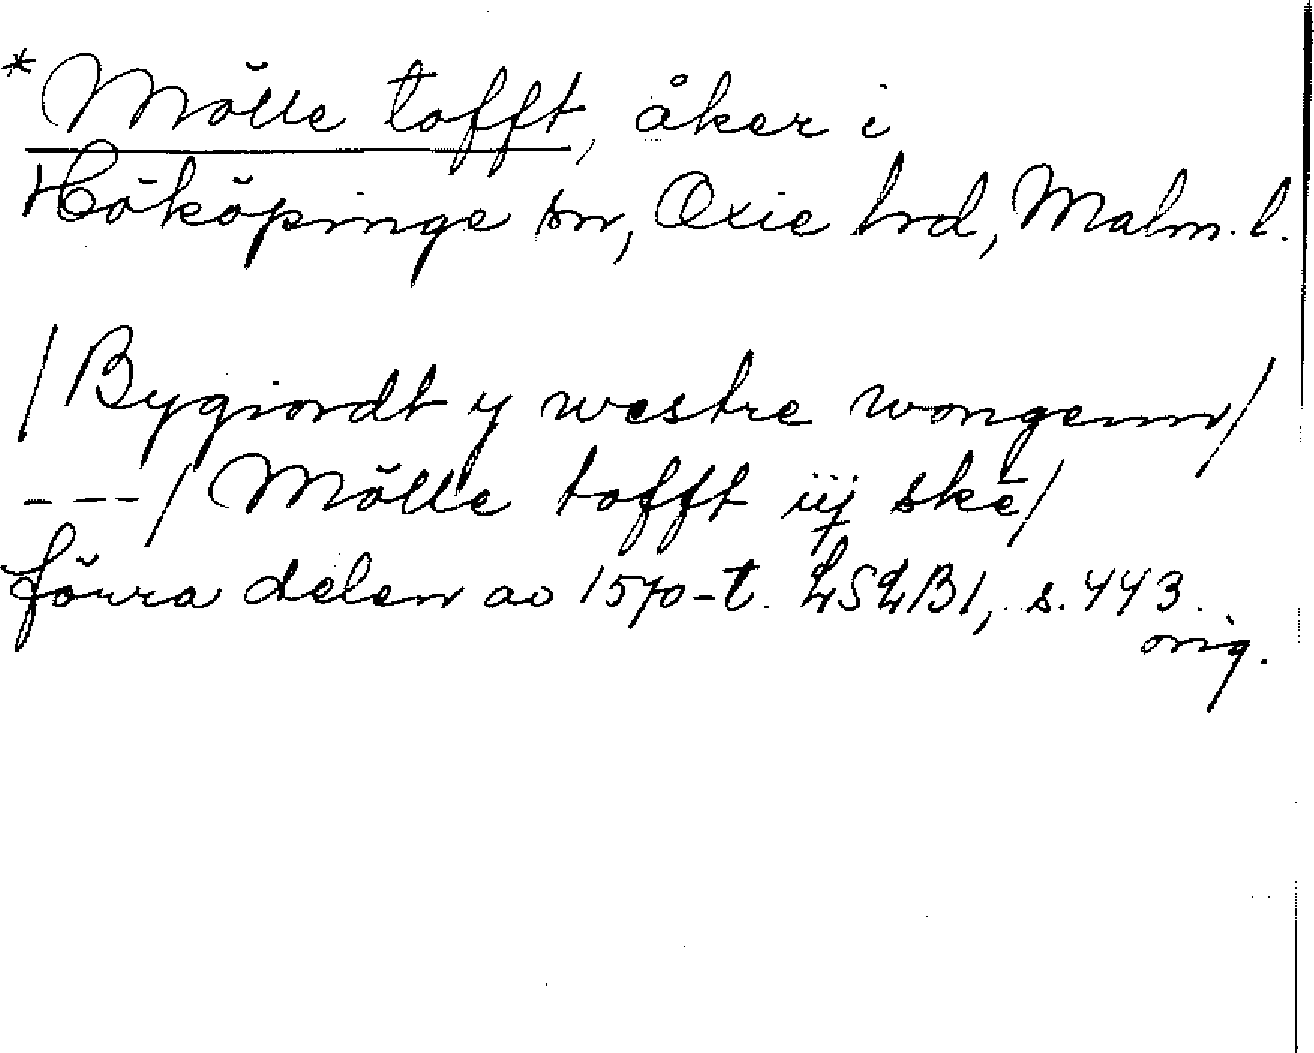 *Mölle tofft, åker i
Hököpinge sn, Oxie hrd, Malm. l.
/Bygiordt y westre wongenn/
---/Mölle tofft iij skė/
förra delen av 1570-t. LSLB1, s. 443.
orig.